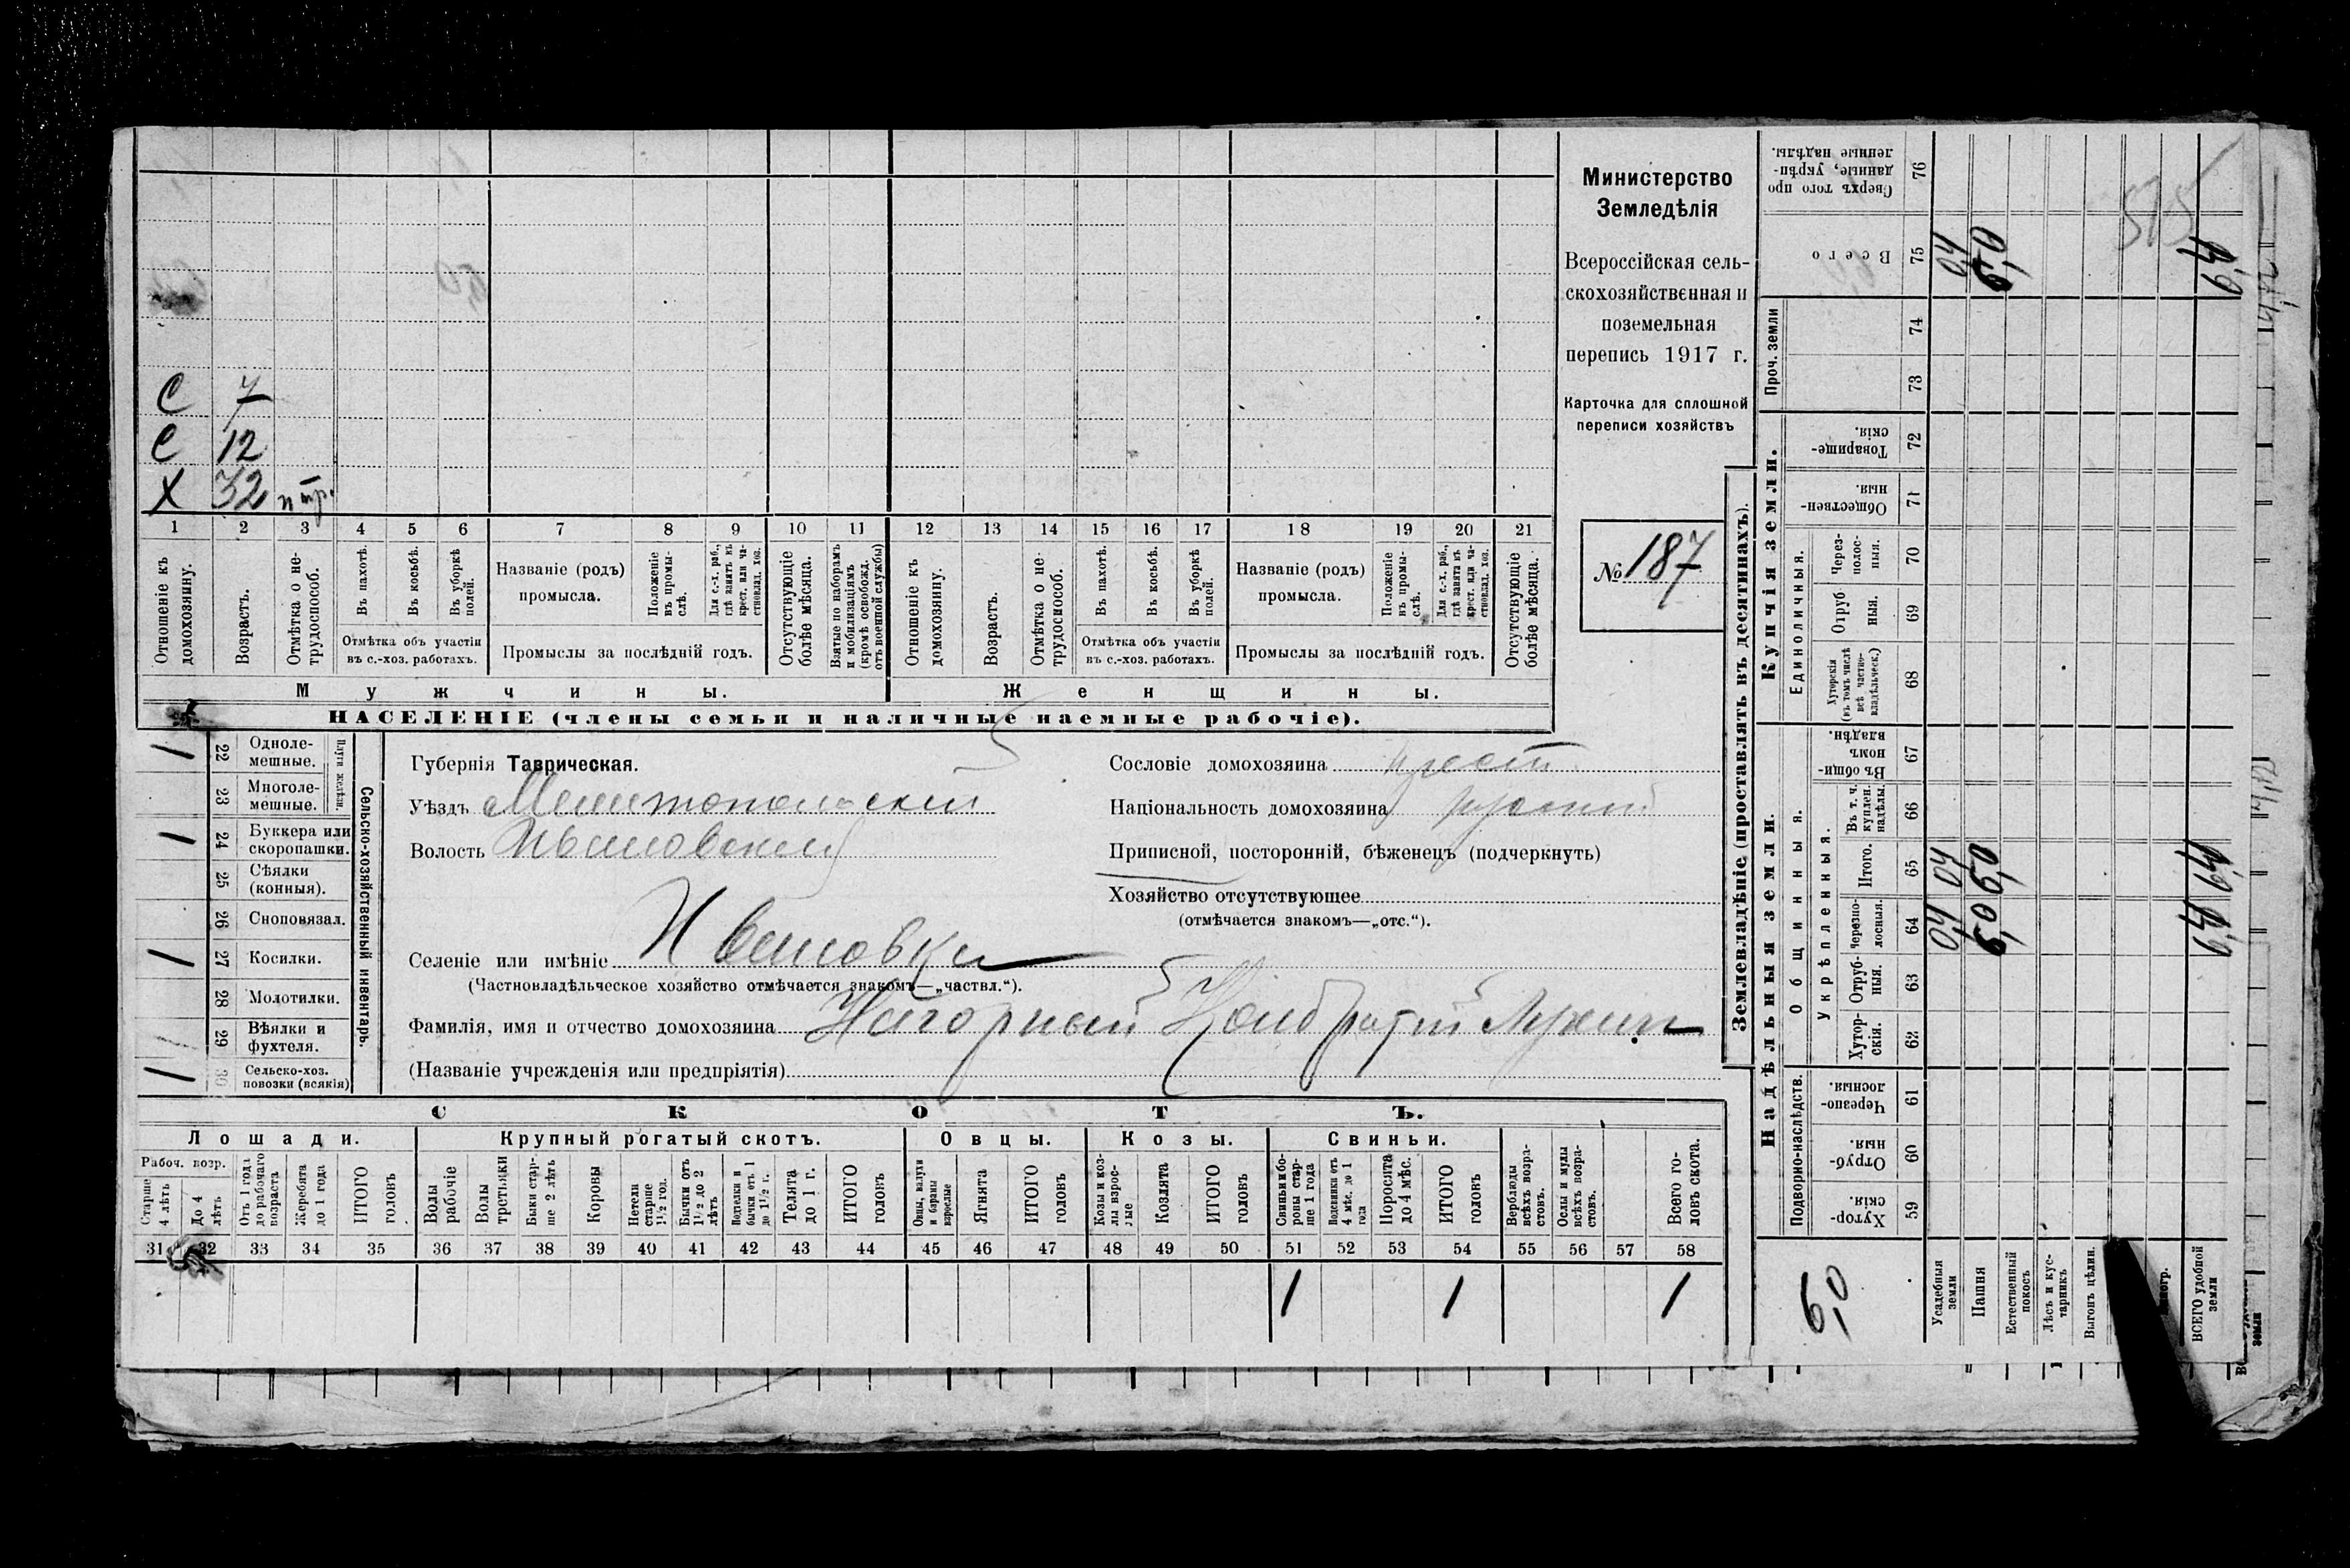 С 7
С 12
Х 32 н тр.
1 2 3 4 5 6 7 8 9 10 11 12 13 14 15 16 17 18 19 20 21
Отношеніе къ домохозяину.
Возрастъ.
Отмѣтка о не-трудоспособ.
Въ пахотѣ.
Въ косьбѣ.
Въ уборкѣ полей.
Отмѣтка объ участіи
въ с.-хоз. работахъ.
Названіе (родъ)
промысла.
Положеніе въ промы-слѣ.
Для с.-х. раб., гдѣ занятъ въ крест. или ча-стновлад. хоз.
Промыслы за послѣдній годъ.
Отсутствующіе болѣе мѣсяца.
Взятые по наборамъ и мобилизаціямъ (кромѣ освобожд. отъ военной службы)
Отношеніе къ домохозяину.
Возрастъ.
Отмѣтка о не-трудоспособ.
Въ пахотѣ.
Въ косьбѣ.
Въ уборкѣ полей.
Отмѣтка объ участіи
въ с.-хоз. работахъ.
Названіе (родъ)
промысла.
Положеніе въ промы-слѣ.
Для с.-х. раб., гдѣ занята въ крест. или ча-стновлад. хоз.
Промыслы за послѣдній годъ.
Отсутствующіе болѣе мѣсяца.
Мужчины. Женщины.
НАСЕЛЕНІЕ (члены семьи и наличные наемные рабочіе).
Министерство
Земледѣлія
Всероссійская сель-
скохозяйственная и
поземельная
перепись 1917 г.
Карточка для сплошной
переписи хозяйствъ
№ 187
Сельско-хозяйственный инвентарь.
1 22 Одноле-мешные.
23 Многоле-мешные.
1 24 Буккера или скоропашки.
25 Сѣялки (конныя).
26 Сноповязал.
1 27 Косилки.
28 Молотилки.
29 Вѣялки и фухтеля.
1 30 Сельско-хоз. повозки (всякія)
Губернія Таврическая.
Уѣздъ Мелитопольскій
Волость Ивановская
Сословіе домохозяина крест.
Національность домохозяина русскій
Приписной, посторонній, бѣженецъ (подчеркнуть)
Хозяйство отсутствующее
(отмѣчается знакомъ—„отс.“).
Селеніе или имѣніе Ивановка
(Частновладѣльческое хозяйство отмѣчается знакомъ—„частвл.“).
Фамилія, имя и отчество домохозяина Нагорный Кондратій Лукин
(Названіе учрежденія или предпріятія)
СКОТЪ.
Лошади. Крупный рогатый скотъ. Овцы. Козы. Свиньи.
Рабоч. возр.
Старше 4 лѣтъ
До 4 лѣтъ
Отъ 1 года до рабочаго возраста
Жеребята до 1 года
ИТОГО головъ
Волы рабочіе
Волы третьяки
Быки стар-ше 2 лѣтъ
Коровы
Нетели старше 1½ год.
Бычки отъ 1½ до 2 лѣтъ
Подтелки и бычки отъ 1 до 1½ г.
Телята до 1 г.
ИТОГО головъ
Овцы, валухи и бараны взрослые
Ягнята
ИТОГО головъ
Козы и коз-лы взрос-лые
Козлята
ИТОГО головъ
Свиньи и бо-ровы стар-ше 1 года
Подсвинки отъ 4 мѣс. до 1 года
Поросята до 4 мѣс.
ИТОГО головъ
Верблюды всѣхъ возра-стовъ.
Ослы и мулы всѣхъ возра-стовъ.
Всего го-ловъ скота.
31 32 33 34 35 36 37 38 39 40 41 42 43 44 45 46 47 48 49 50 51 52 53 54 55 56 57 58
1 1 1
Землевладѣніе (проставлять въ десятинахъ).
Купчія земли.
Надѣльныя земли.
Проч. земли
Единоличныя.
Общинныя.
Укрѣпленныя.
Подворно-наслѣдств.
Сверхъ того про данные, укрѣп-ленные надѣлы. 76
Всего 75 0,4 6,0 6,4
74
73
Товарище-скія. 72
Обществен-ныя. 71
Через-полос-ныя. 70
Отруб ныя. 69
Хуторскія (въ томъ числѣ всѣ частно-владѣльческ.) 68
Въ общи-номъ владѣн. 67
Въ т. ч. куплен. надѣлы. 66
Итого. 65 0,4 6,0 6,4
Черезпо-лосныя. 64 0,4 6,0 6,4
Отруб-ныя. 63
Хутор-скія. 62
Черезпо-лосныя. 61
Отруб-ныя. 60
Хутор-скія. 59
6,0
Усадебныя земли
Пашня
Естественный покосъ
Лѣсъ и кус-тарникъ
Выгонъ цѣлин.
ВСЕГО удобной земли
515